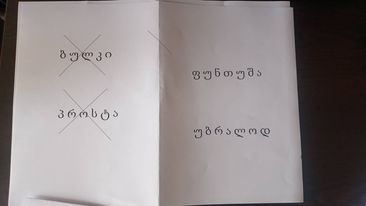 ბულკი
პროსტა
ფუნთუშა
უბრალოდ